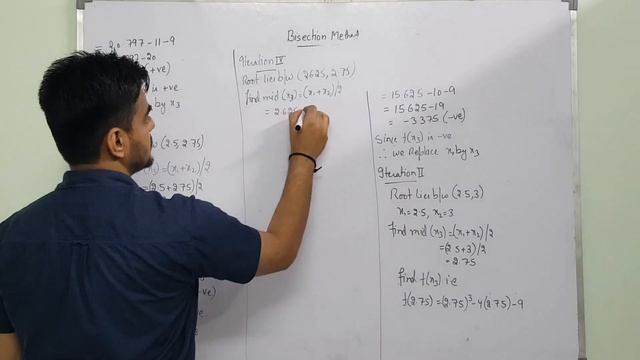 Bisection Method
= 20.797-11-9
7-20
+ve)
is +ve
by x3
b/w (2.5, 2.75)
(x3) = (x1+x2)/2
= (2.5+2.75)/2
-ve)
-ve
Iteration IV
Root lies b/w (2.625, 2.75)
find mid (x3) = (x1+x2)/2
= 2.625
= 15.625-10-9
= 15.625-19
= -3.375 (-ve)
Since f(x3) is -ve
∴ we Replace x1 by x3
Iteration II
Root lies b/w (2.5, 3)
x1 = 2.5, x2 = 3
find mid (x3) = (x1+x2)/2
= (2.5+3)/2
= 2.75
find f(x3) i.e
f(2.75) = (2.75)³-4(2.75)-9